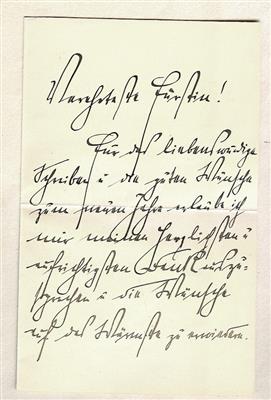 Verehrteste Fürstin!
Für das liebenswürdige
Schreiben u die guten Wünsche
zum neuen Jahre erlaube ich
mir meinen herzlichsten u
aufrichtigsten Dank auszu-
sprechen u die Wünsche
auf das Wärmste zu erwiedern.